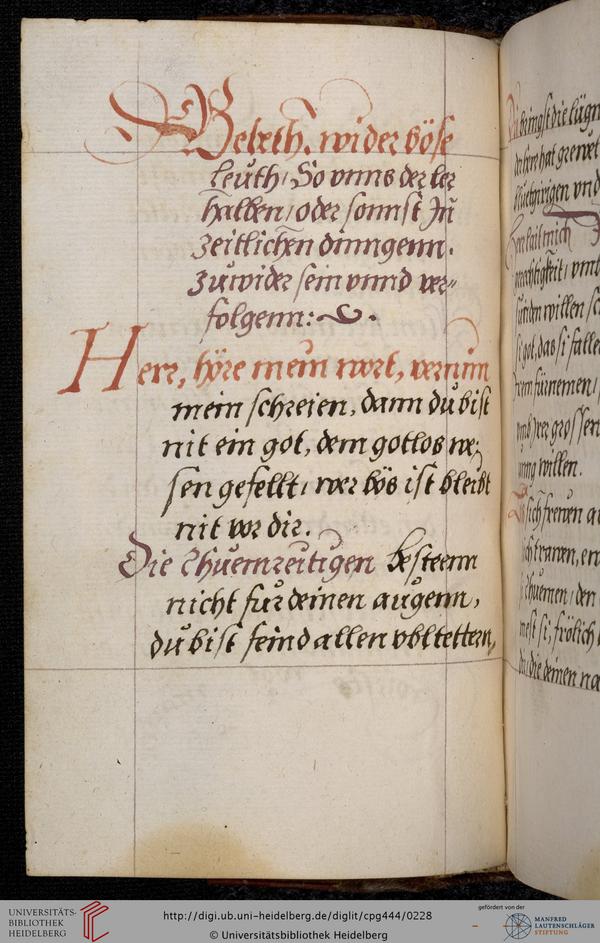 Gebeth. wider böse
leuth, So vnns der ler
halben, oder sonnst Jn̄
zeitlichen dinngenn.
zuwider sein vnnd ver=
folgenn:
Herr, höre mein wort, vernim
mein schreien, dann du bist
nit ein got, dem gotlos we=
sen gefellt, wer bös ist bleibt
nit vor dir.
Die Rhuemreitigen besteenn
nicht fur deinen augenn,
du bist feind allen vbltettern,
bringst die lügn
der herr hat grewel
vnd
willen
got, das si falle
furnemen,
grossen
willen.
sich frewen
trawen,
den
frölich
die deinen na
UNIVERSITÄTS-
BIBLIOTHEK
HEIDELBERG
http://digi.ub.uni-heidelberg.de/diglit/cpg444/0228
© Universitätsbibliothek Heidelberg
gefördert von der
MANFRED
LAUTENSCHLÄGER
STIFTUNG